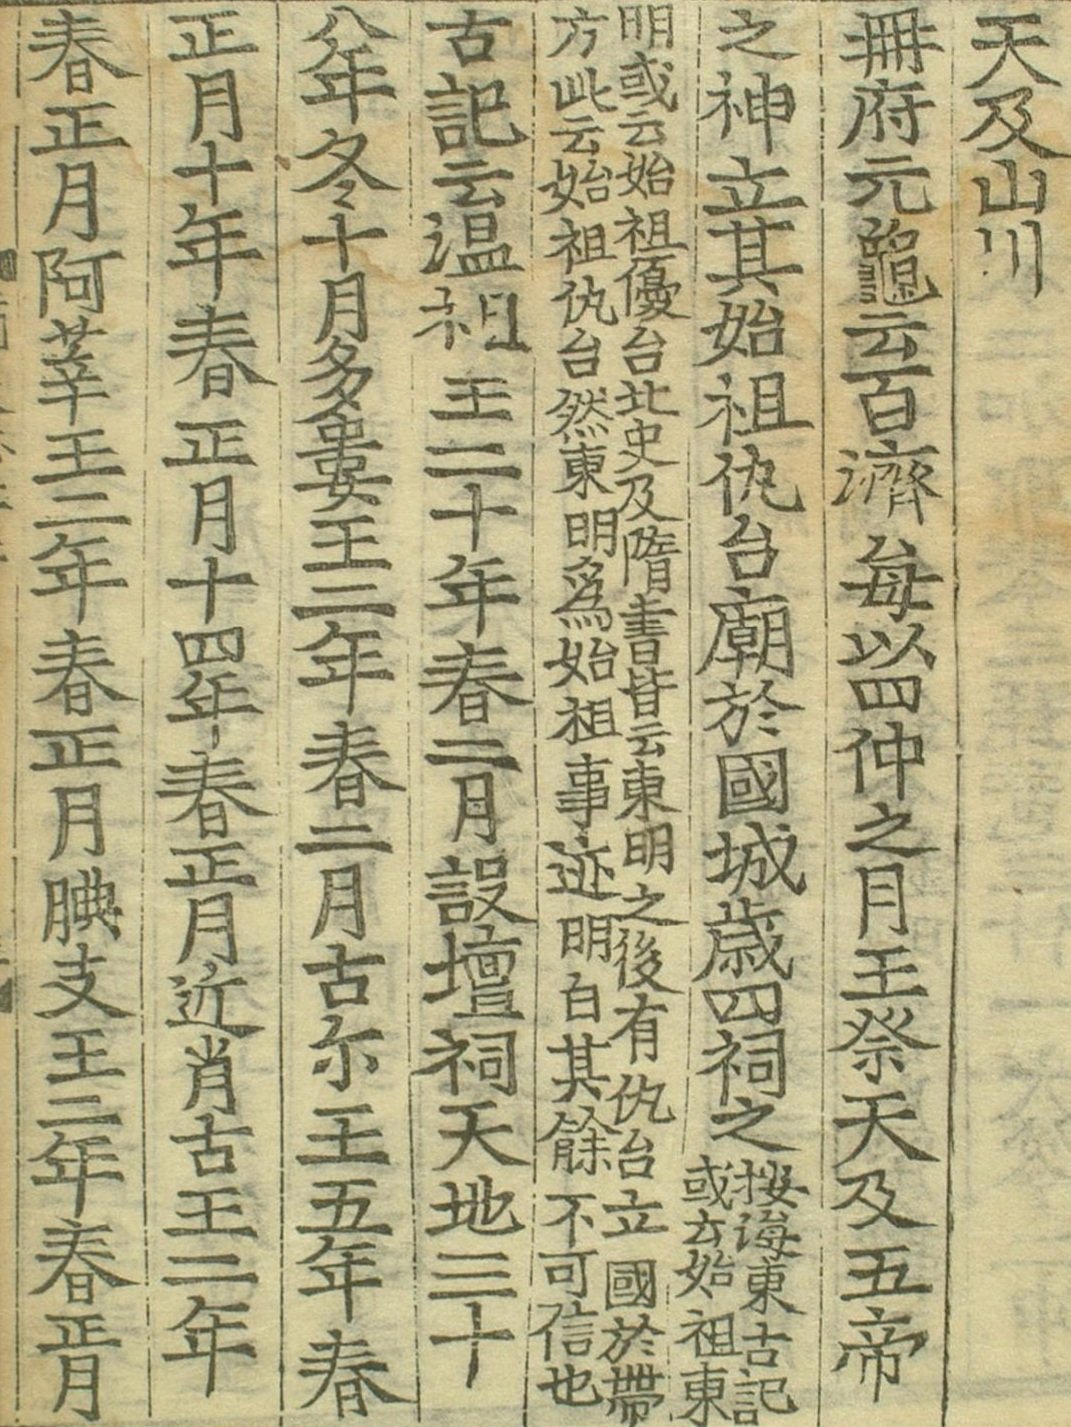 天及山川
冊府元龜云百濟每以四仲之月王祭天及五帝
之神立其始祖仇台廟於國城歲四祠之按海東古記
或云始祖東
明或云始祖優台北史及隋書皆云東明之後有仇台立國於帶
方此云始祖仇台然東明爲始祖事迹明白其餘不可信也
古記云温祖王二十年春二月設壇祠天地三十
八年冬十月多婁王二年春二月古尔王五年春
正月十年春正月十四年春正月近肖古王二年
春正月阿莘王二年春正月腆支王二年春正月